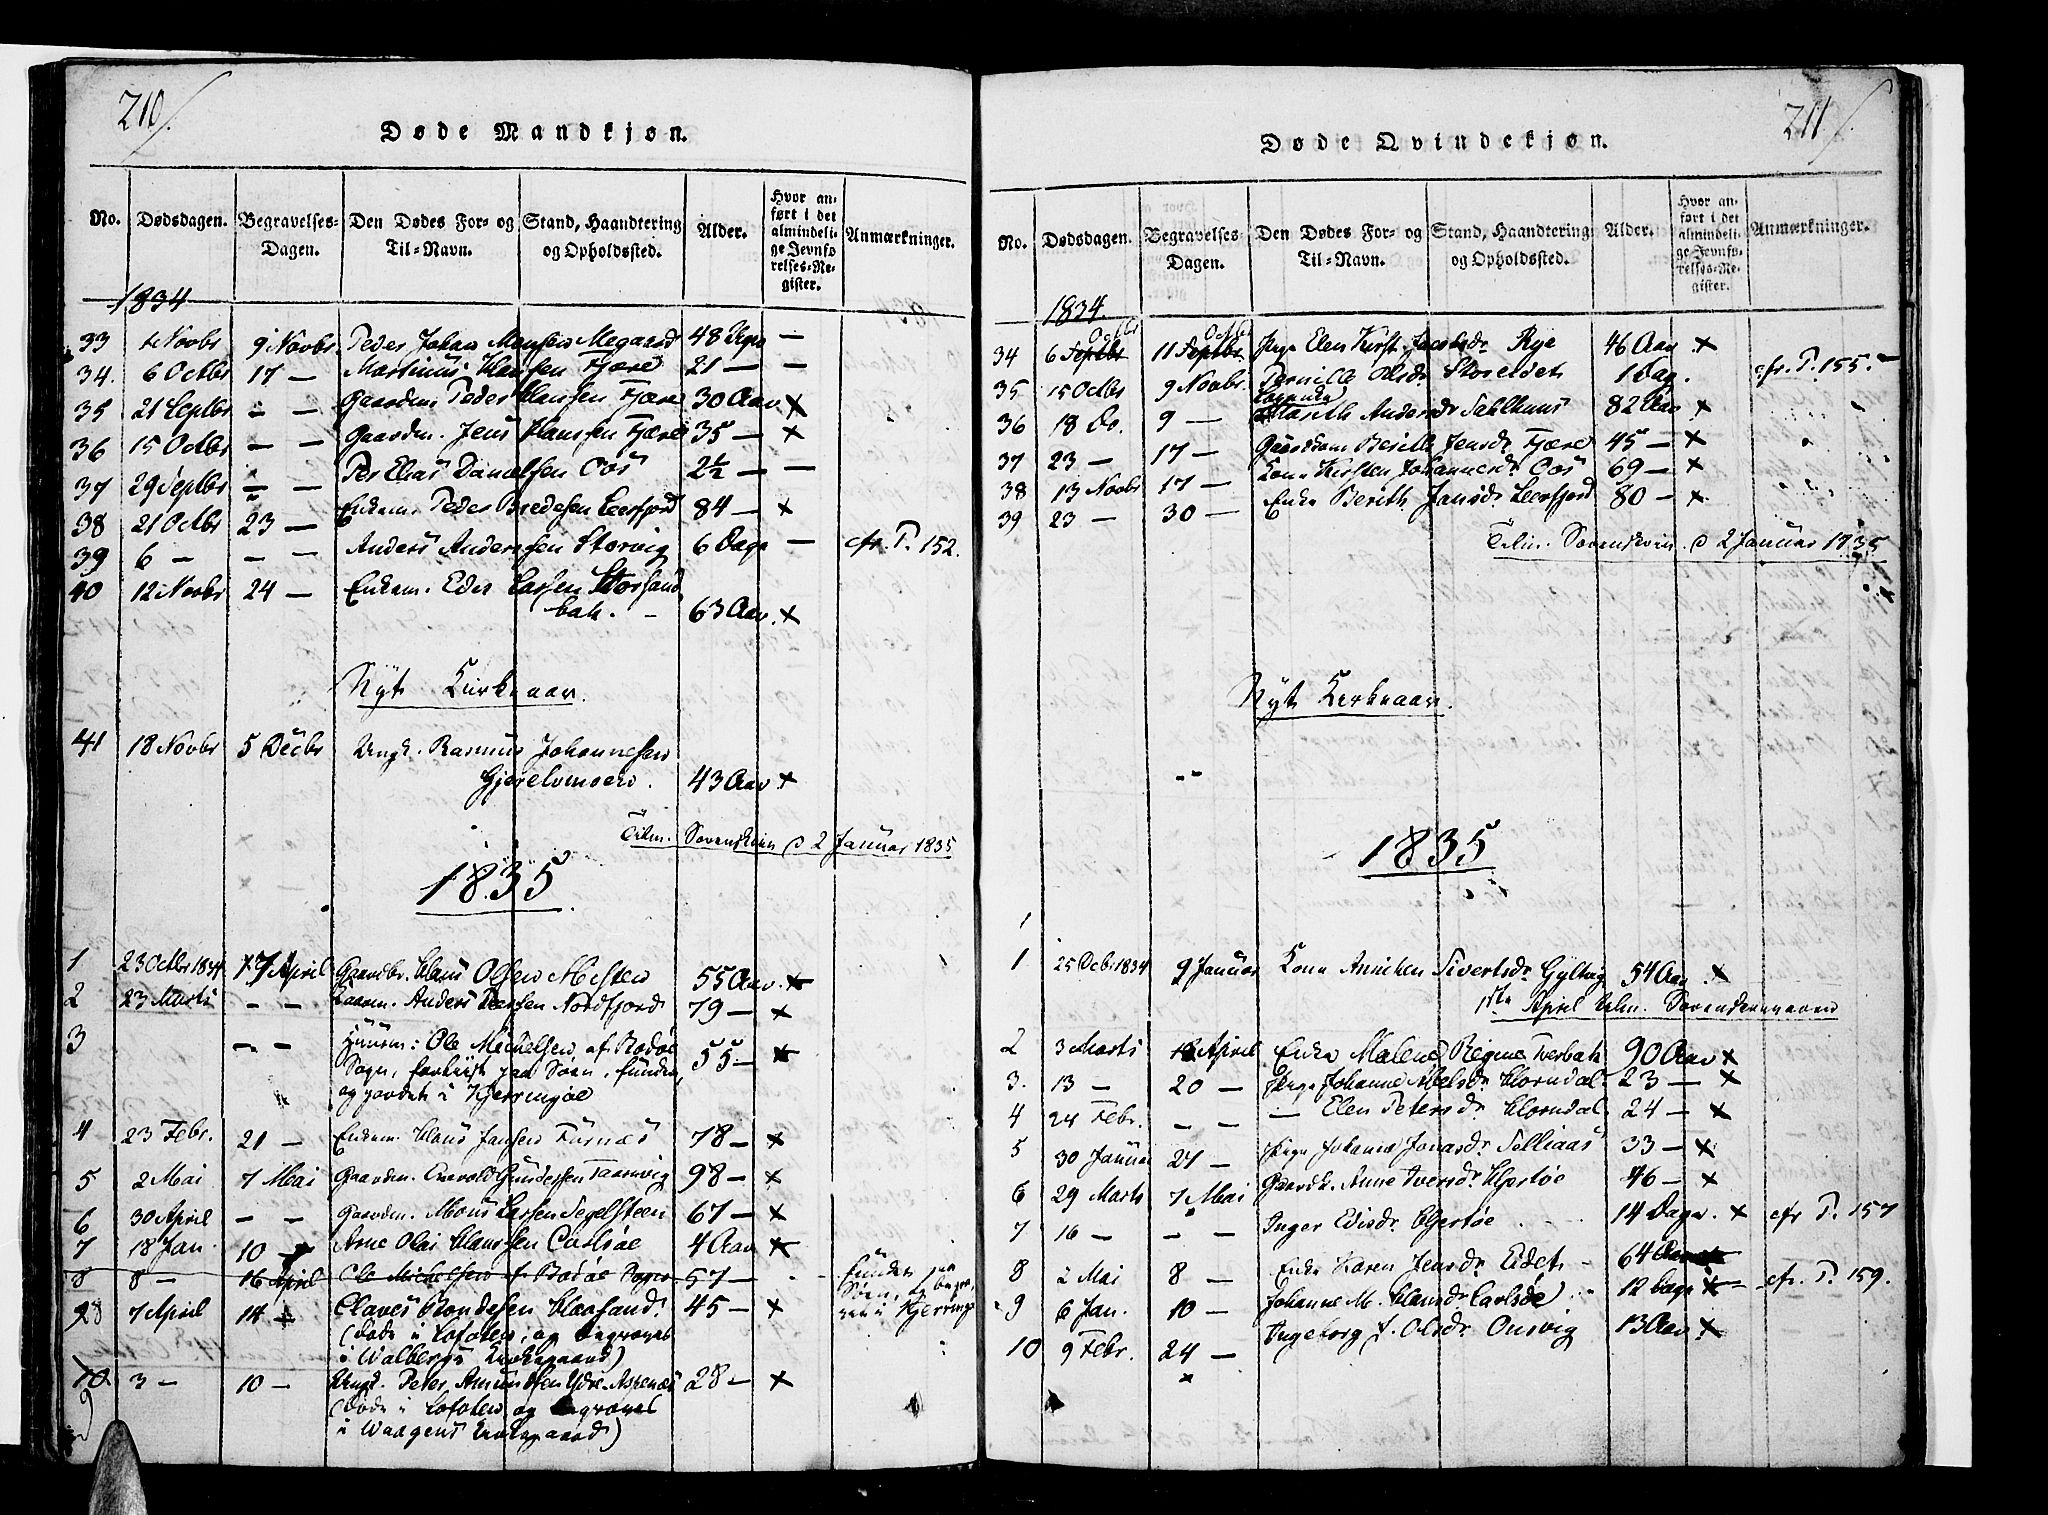 210.
Døde Mandkjøn.
No. Dødsdagen. Begravelses-Dagen. Den Dødes For- og Til-Navn. Stand, Haandtering og Opholdssted. Alder. Hvor anført i det almindelige Jevnførelses-Register. Anmærkninger.
1834
33 Novbr 9 Novbr Peder Johan Monsen Megaard 48 Uger —
34. 6 Octbr 17 — Martinus Hansen Fjære 21 — —
35 21 Septbr — — Gaardm. Peder Hansen Fjære 30 Aar ×
36 15 Octbr — — Gaardm. Jens Hansen Fjære 35 — ×
37 29 Septbr — — Per Elias Danielsen Oos 2½ — —
38 21 Octbr 23 — Enkem. Peder Bredesen Leerfjord 84 — ×
39 6 — — — Anders Andersen Storvig 6 Dage — cfr. P. 152.
40 12 Novbr 24 — Enkem. Eder Larsen Storsand
bak. - 63 Aar ×
Nyt Kirkeaar.
41 18 Novbr 5 Decbr Ungk. Rasmus Johannesen
Gjerelvmoen. 43 Aar ×
Tilm. Sorenskriv. d 2 Januar 1835
1835
1 23 Octbr 1834 17 April Gaardbr. Claus Olsen Misten 55 Aar ×
2 23 Marts — — Anders Nordfjord 79 — ×
3 — — Huusm: Ole Michelsen af Bodøe 55 — ×
Sogn, forliist paa Søen, funden,
og jordet i Kjerringøe
4 23 Febr. 21 — Enkem. Claus Jansen Furnæs 78 — ×
5 2 Mai 7 Mai Gaardm. Gundersen Taarnvig 98 — ×
6 30 April — — Gaardm. Mons Larsen Segelsteen 67 — ×
7 18 Jan. 10 — Arne Olai Clausen Carlsøe 4 Aar ×
8 8 — 16 April Ole Michelsen af Bodøe Sogn 57 — funden paa
Søen, og begra-
vet i Kjerringø
98 7 April 14 — Claves Hansand. 45 — ×
(døde i Lofoten, og begravet
i Walbergs Kirkegaard)
10 9 3 — 10 — Ungd. Peter Amundsen Ydre Aspenæs 28 — ×
(døde i Lofoten og begravet
i Waagens Kirkegaard)
211.
Døde Qvindekjøn.
No. Dødsdagen. Begravelses-Dagen. Den Dødes For- og Til-Navn. Stand, Haandtering og Opholdssted. Alder. Hvor anført i det almindelige Jevnførelses-Register. Anmærkninger.
1834
Octbr Octbr
34 6 Septbr 11 Septbr Pige Elen Kirst. Jacobsdr Rye 46 Aar ×
35 15 Octbr 9 Novbr Pernille Olsdr Storeidet 1 Dag. cfr. P. 155.
36 18 Do. 9 — Marith Andersdr Sahlhuus 82 Aar ×
37 23 — 17 — Berith Jensdr Fjære 45 — ×
38 13 Novbr 17 — Kone Kirsten Johannesdr Oos 69 — ×
39 23 — 30 — Enke Berith Jansdr Leerfjord 80 — ×
Tilm. Sorenskriv. d 2 Januar 1835
Nyt Kirkeaar.
1835
1 25 Decbr. 1834 9 Januar Kone Annichen Sivertsdr Gyltvig 54 Aar ×
1ste April tilm. Sorenskriveren
2 3 Marts April Enke Malene Regine Tverbak 90 Aar ×
3. 13 — 20 — Pige Johanne Nielsdr Horndal 23 — ×
4 24 Febr. — — — Elen Petersdr Horndal 24 — ×
5 30 Januar 27 — Pige Johanna Jonasdr Selliaas 33 — ×
6 29 Marts 7 Mai Gaardk. Anne Iversdr Hjertøe 46 — ×
7 16 — — — Inger Edisdr Hjertøe 14 Dage. × cfr P. 157
8 2 Mai 8 — Enke Karen Jensdr Eidet - 64 Aar
9 6 Jan. 10 — Johanne M. Clausdr Carlsøe 12 Dage × cfr. P. 159.
10 9 Febr. 24 — Ingeborg J. Olsdr Onsvig 13 Aar ×